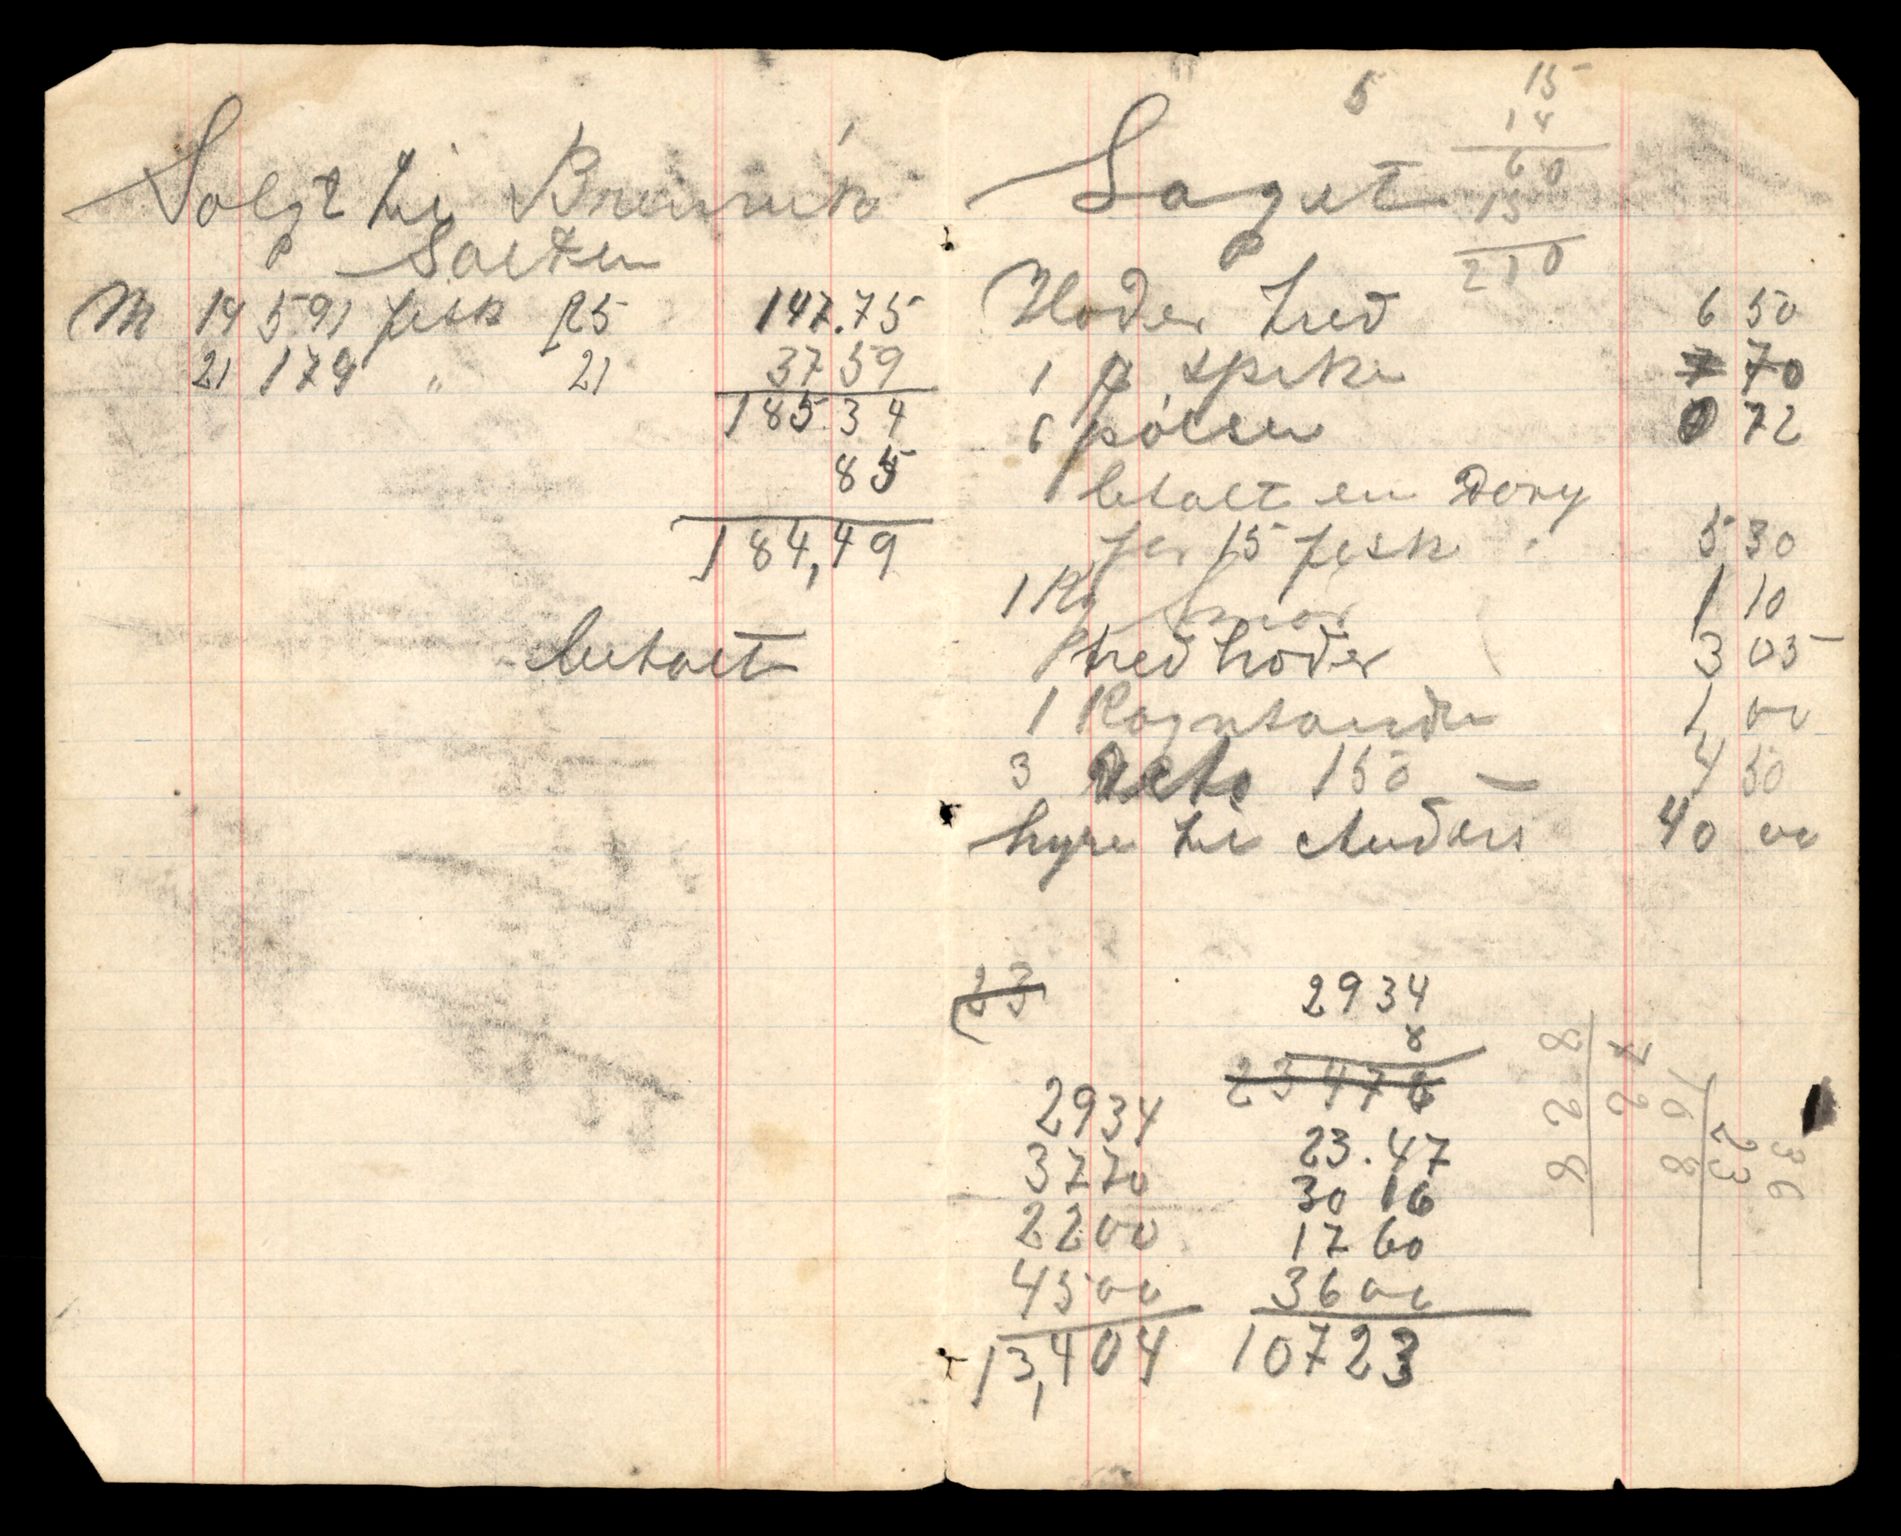 Solgt til Brennvik
Salten
M 14 591 fisk 25 147.75
21 179 " 21 37 59
185.34
85
184,49
betalt
5
15
14
60
15
210
Laget
Hoder tred 6 50
1 p spiker 7 70
6 pölser 0 72
betalt en Dory
for 15 fisk 5 30
1 Kg Smör 1 10
tred hoder 3 05
1 Rogntønde 1 00
3 150 — 4 50
hyre til Anders 40 00
23
2934
8
23476
2934 23.47
3770 30 16
2200 17 60
4500 36 00
13,404 10723
36
23
168
72
828